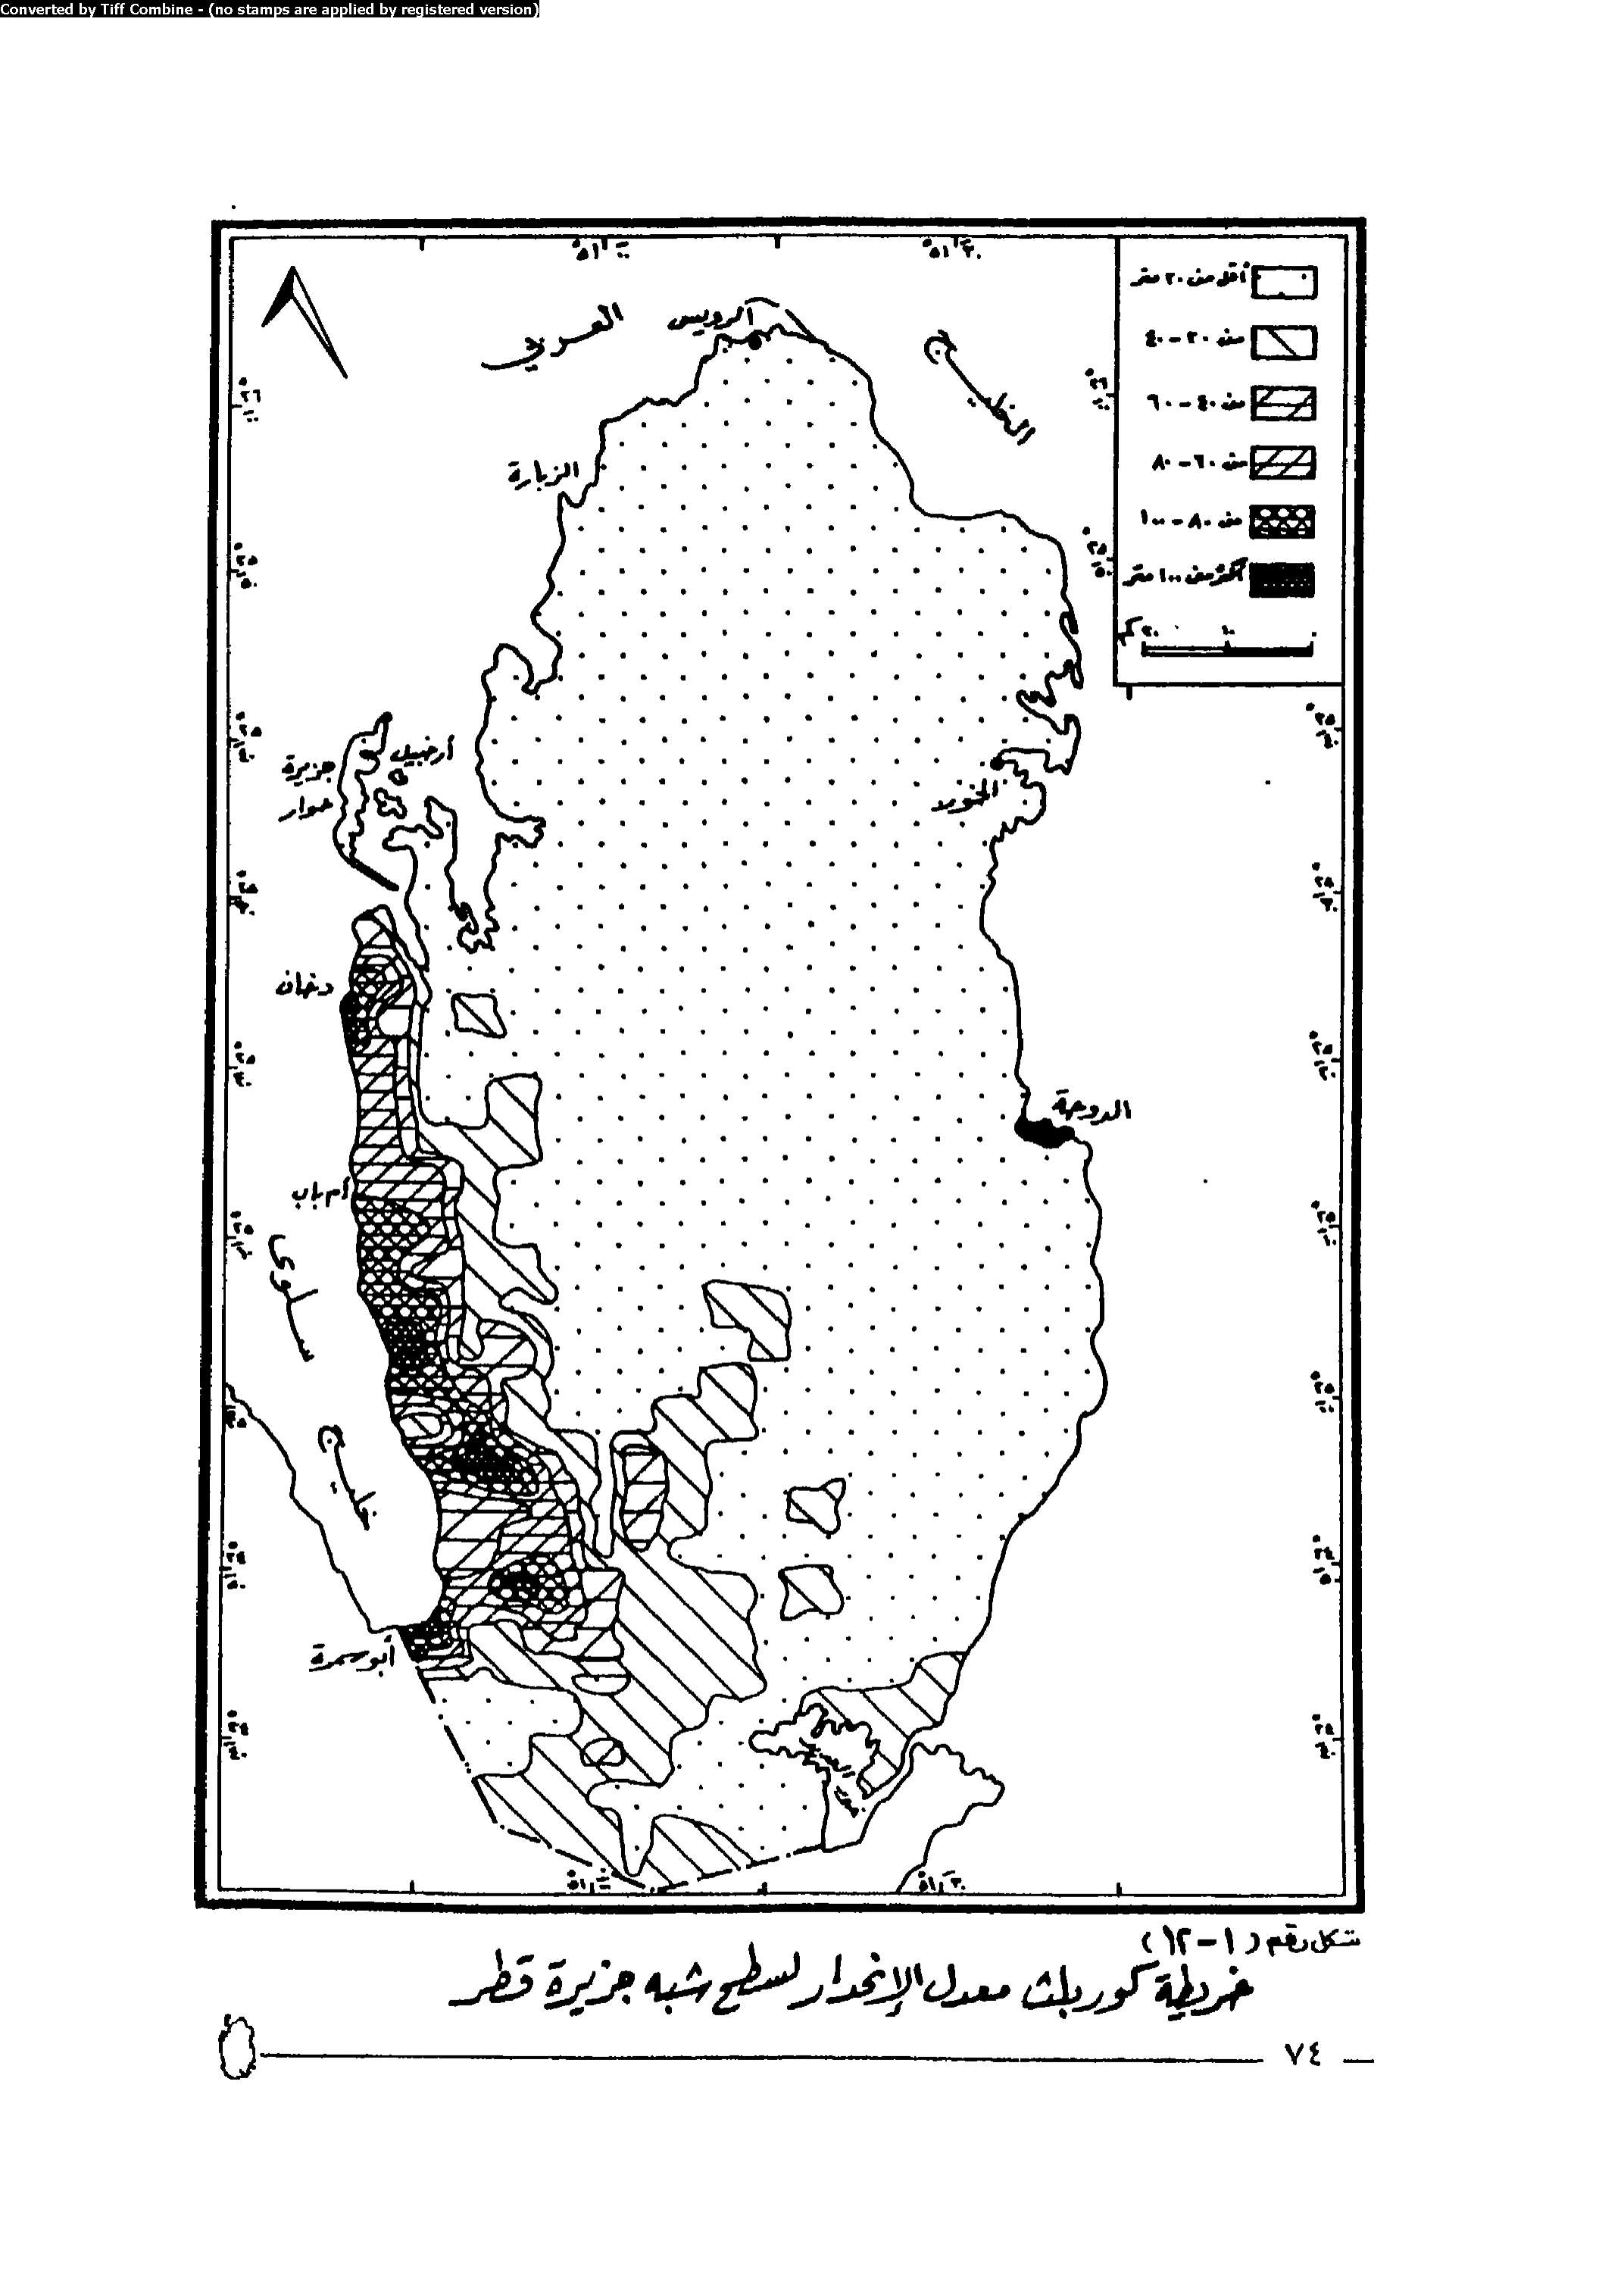 Converted by Tiff Combine - (no stamps are applied by registered version)
°٥١ ٠٠
°٥١ ٣٠
أقل من ٢٠ متر
من ٢٠ - ٤٠
من ٤٠ - ٦٠
من ٦٠ - ٨٠
من ٨٠ - ١٠٠
أكثر من ١٠٠ متر
٢٠ كم ١٠ ٠
الخليج
العربي
الرويس
الزبارة
جزيرة
حوار
الخور
دخان
الدوحة
أم باب
خليج
سلوى
أبو سمرة
°٥١ ٠٠
°٥١ ٣٠
شكل رقم (١-١٢)
خريطة كوربلث معدل الإنحدار لسطح شبه جزيرة قطر
٧٤